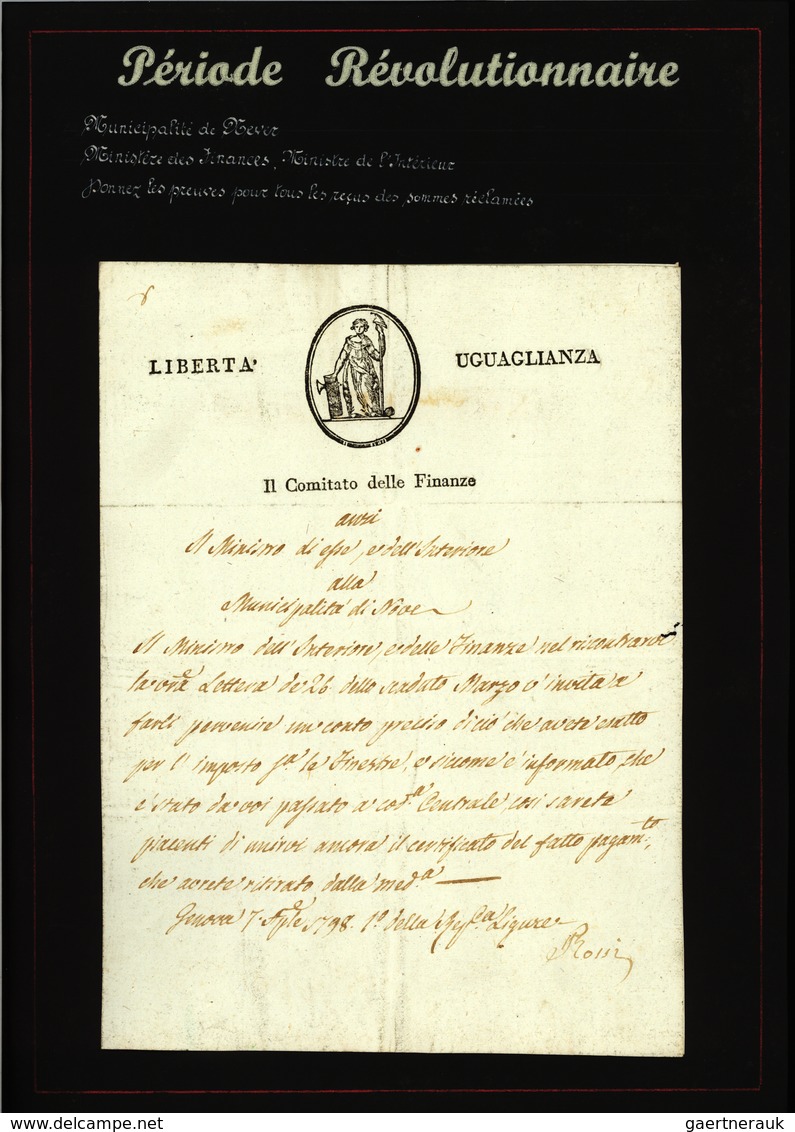 Période Révolutionnaire
Municipalité de Never
Ministère des Finances, Ministre de l'Intérieur
Donnez les preuves pour tous les reçus des sommes réclamées
LIBERTA'
UGUAGLIANZA
Il Comitato delle Finanze
Il Ministro di esse, e dell'Interiore
alla
Municipalità di Nove
Il Ministro dell'Interiore, e delle Finanze nel riscontrarvi
la vra Lettera de 26 dello scaduto Marzo v'invita a
farli pervenire un conto preciso di ciò che avete esatto
per l'imposto le Finestre, e siccome è informato, che
è stato da voi passato a coda Centrale, così sarete
piacenti di unirvi ancora il certificato del fatto pagamto,
che avrete ritirato dalla meda
Genova 7 Aple 1798. 1o della Repca Ligure
Rossi
delcampe.net
gaertnerauk